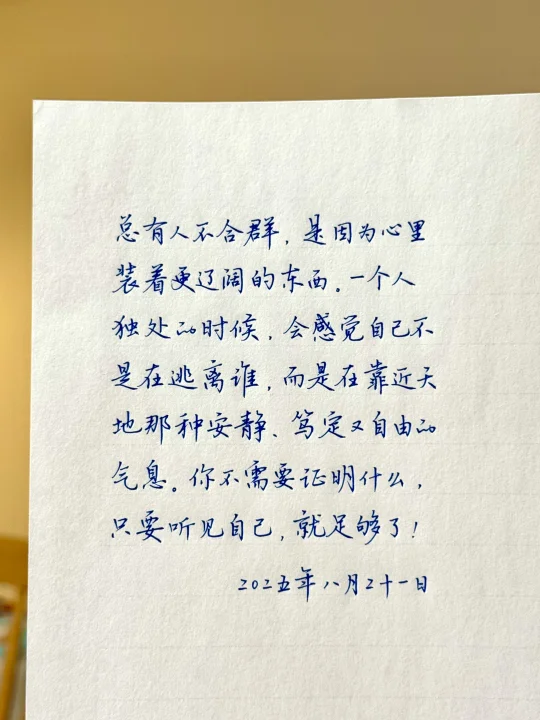 总有人不合群，是因为心里
装着更辽阔的东西。一个人
独处的时候，会感觉自己不
是在逃离谁，而是在靠近天
地那种安静、笃定又自由的
气息。你不需要证明什么，
只要听见自己，就足够了！
2025年八月二十一日